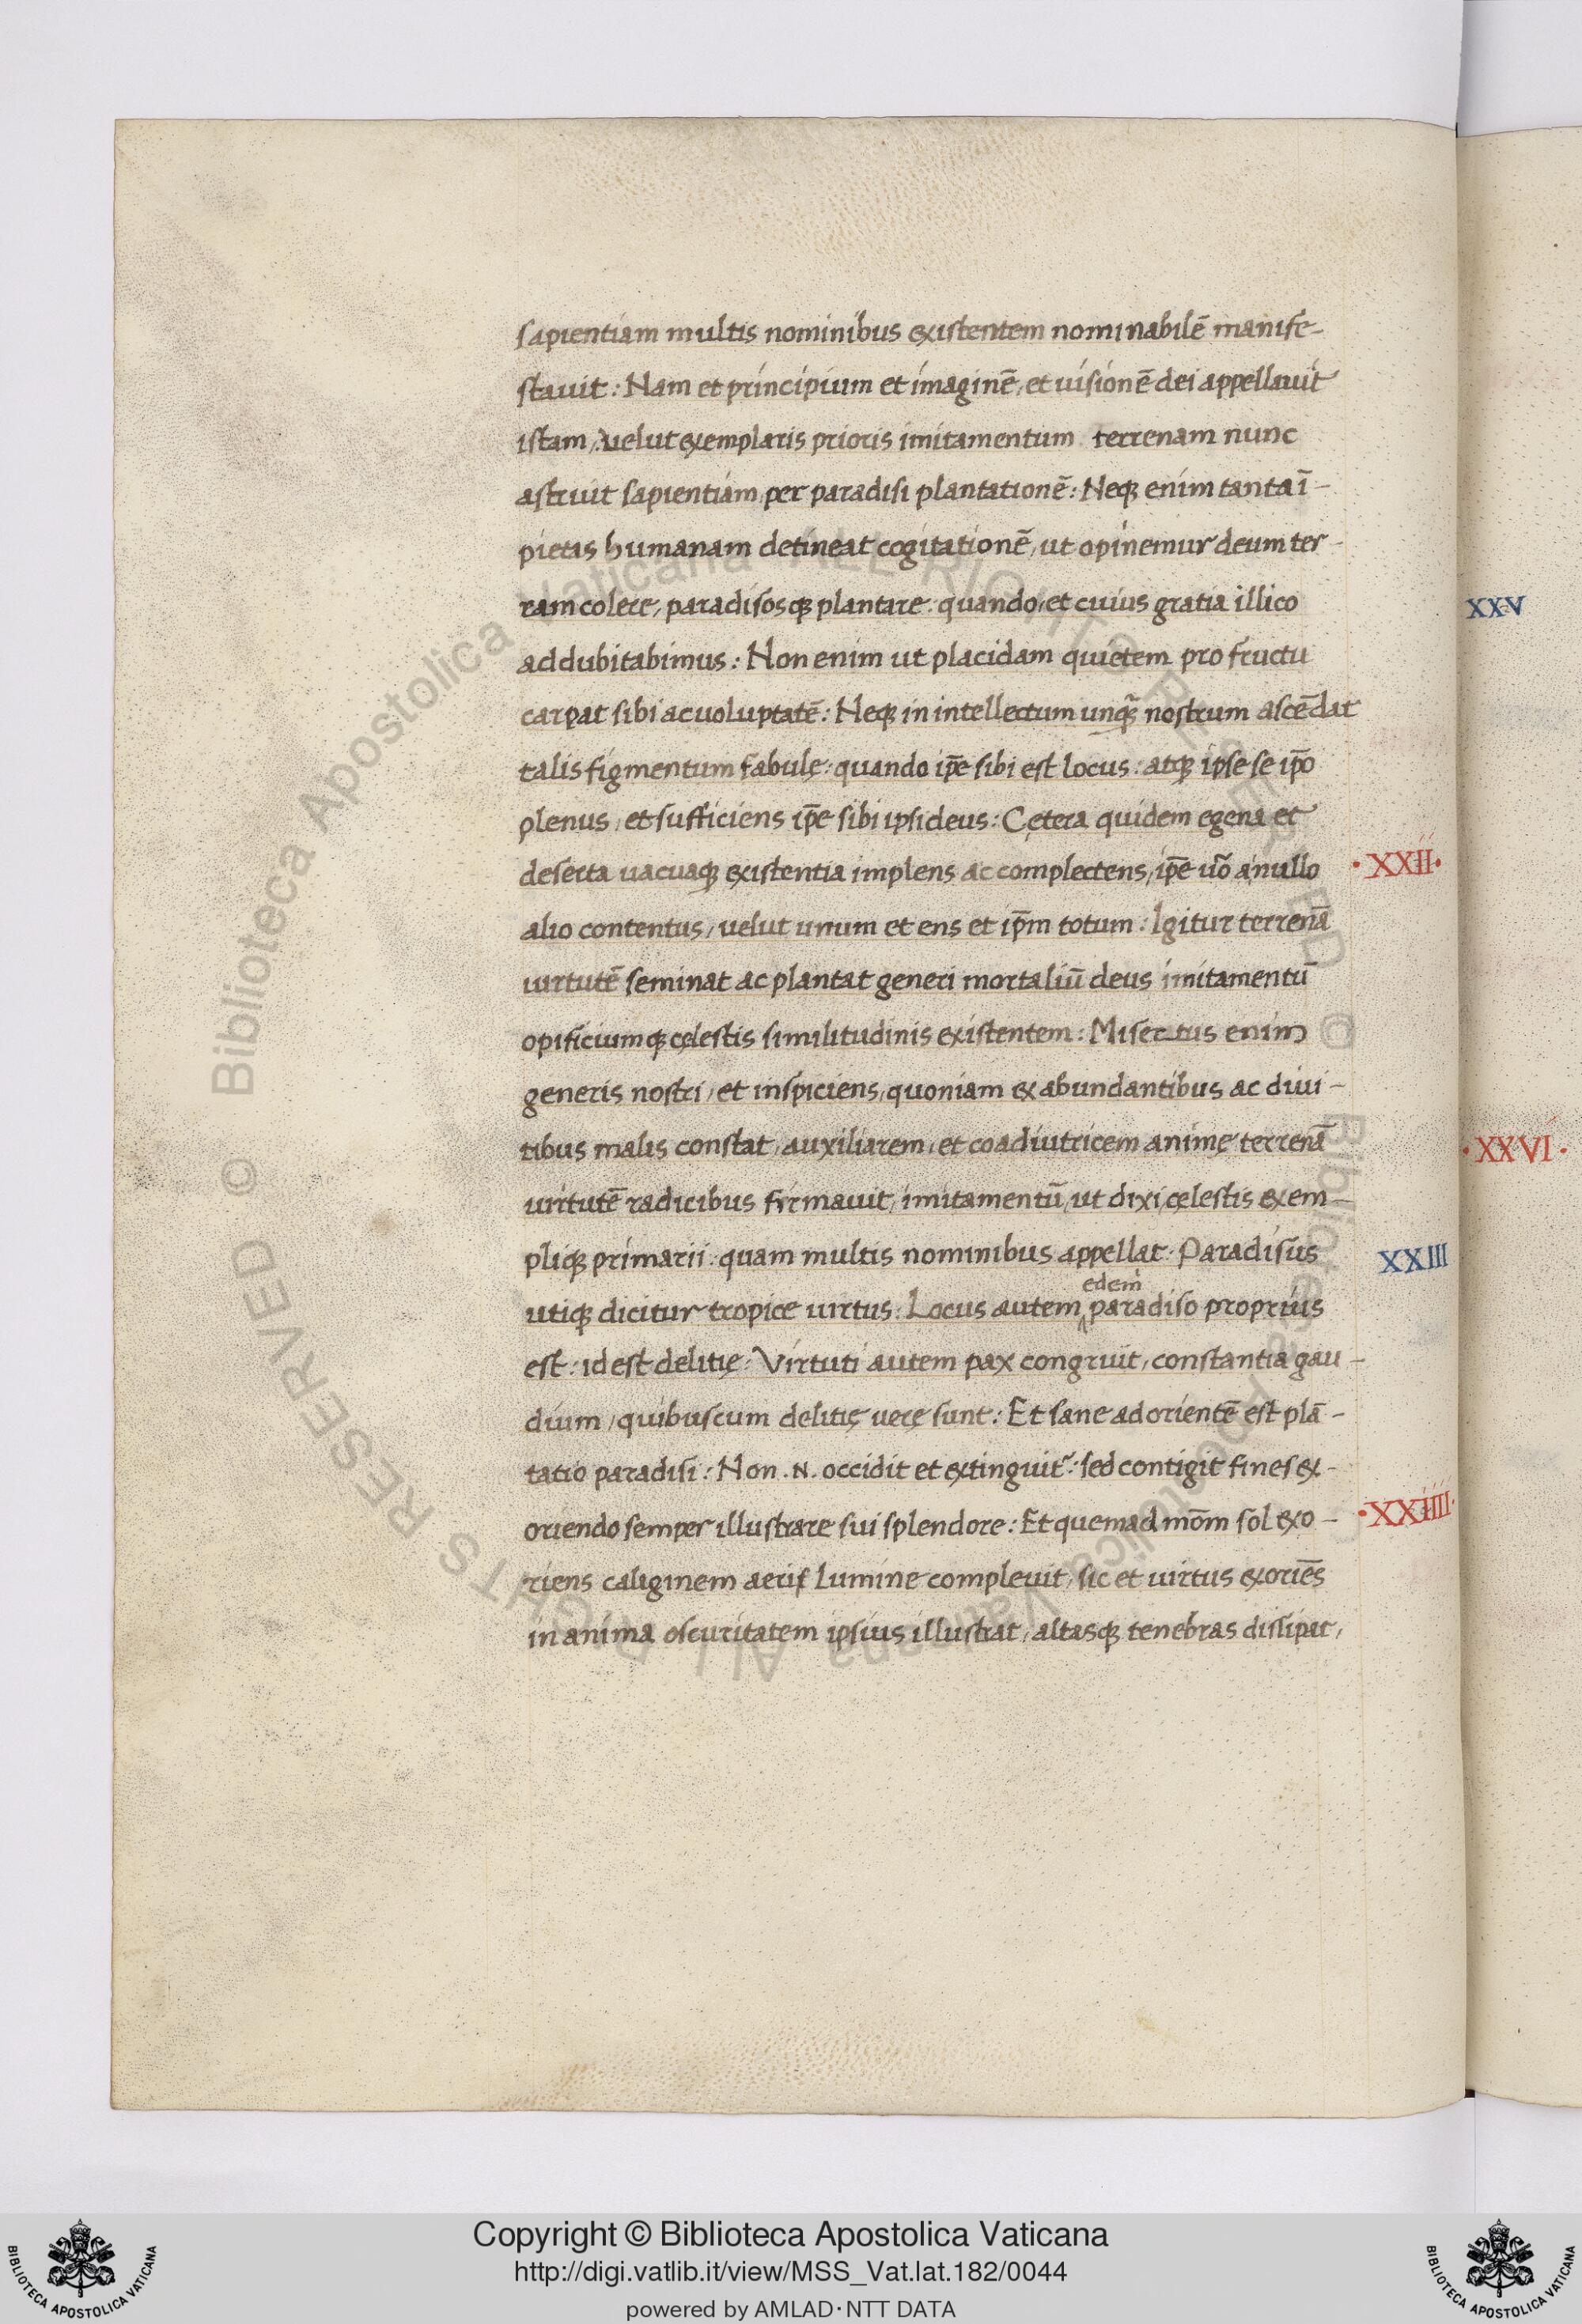 sapientiam multis nominibus existentem nominabilē manife-
stauit: Nam et principium et imaginē, et uisionē dei appellauit
istam, uelut exemplaris prioris imitamentum terrenam nunc
astruit sapientiam per paradisi plantationē: Neqꝫ enim tanta ī-
pietas humanam detineat cogitationē, ut opinemur deum ter-
ram colere, paradisosqꝫ plantare: quando, et cuius gratia illico
XXV
addubitabimus: Non enim ut placidam quietem pro fructu
carpat sibi ac uoluptatē: Neqꝫ in intellectum unqꝫ̄ nostrum ascēdat
talis figmentum fabulę: quando ip̄e sibi est locus: atqꝫ ipse se ip̄o
plenus, et sufficiens ip̄e sibi ipsi deus: Cętera quidem egena et
deserta uacuaqꝫ existentia implens ac complectens, ip̄e uō a nullo
·XXII·
alio contentus, uelut unum et ens et ip̄m totum: Igitur terrenā
uirtutē seminat ac plantat generi mortaliū deus imitamentū
opificiumqꝫ cęlestis similitudinis existentem: Misertus enim
generis nostri, et inspiciens, quoniam ex abundantibus ac diui-
tibus malis constat, auxiliarem, et coadiutricem animę terrenā
·XXVI·
uirtutē radicibus firmauit, imitamentū, ut dixi, cęlestis exem-
pliqꝫ primarii: quam multis nominibus appellat: Paradisus
XXIII
edem
utiqꝫ dicitur tropice uirtus: Locus autem ‸ paradiso proprius
est: id est delitię: Virtuti autem pax congruit, constantia gau-
dium, quibuscum delitię uerę sunt: Et sane ad orientē est plā-
tatio paradisi: Non .N. occidit et extinguit͛: sed contigit fines ex-
oriendo semper illustrare sui splendore: Et quemadmōm sol exo-
·XXIIII·
riens caliginem aeris lumine compleuit, sic et uirtus exoriēs
in anima oscuritatem ipsius illustrat, altasqꝫ tenebras dissipat,
Copyright © Biblioteca Apostolica Vaticana
http://digi.vatlib.it/view/MSS_Vat.lat.182/0044
powered by AMLAD·NTT DATA
BIBLIOTECA APOSTOLICA VATICANA
BIBLIOTECA APOSTOLICA VATICANA
© Biblioteca Apostolica Vaticana ALL RIGHTS RESERVED
© Biblioteca Apostolica Vaticana ALL RIGHTS RESERVED